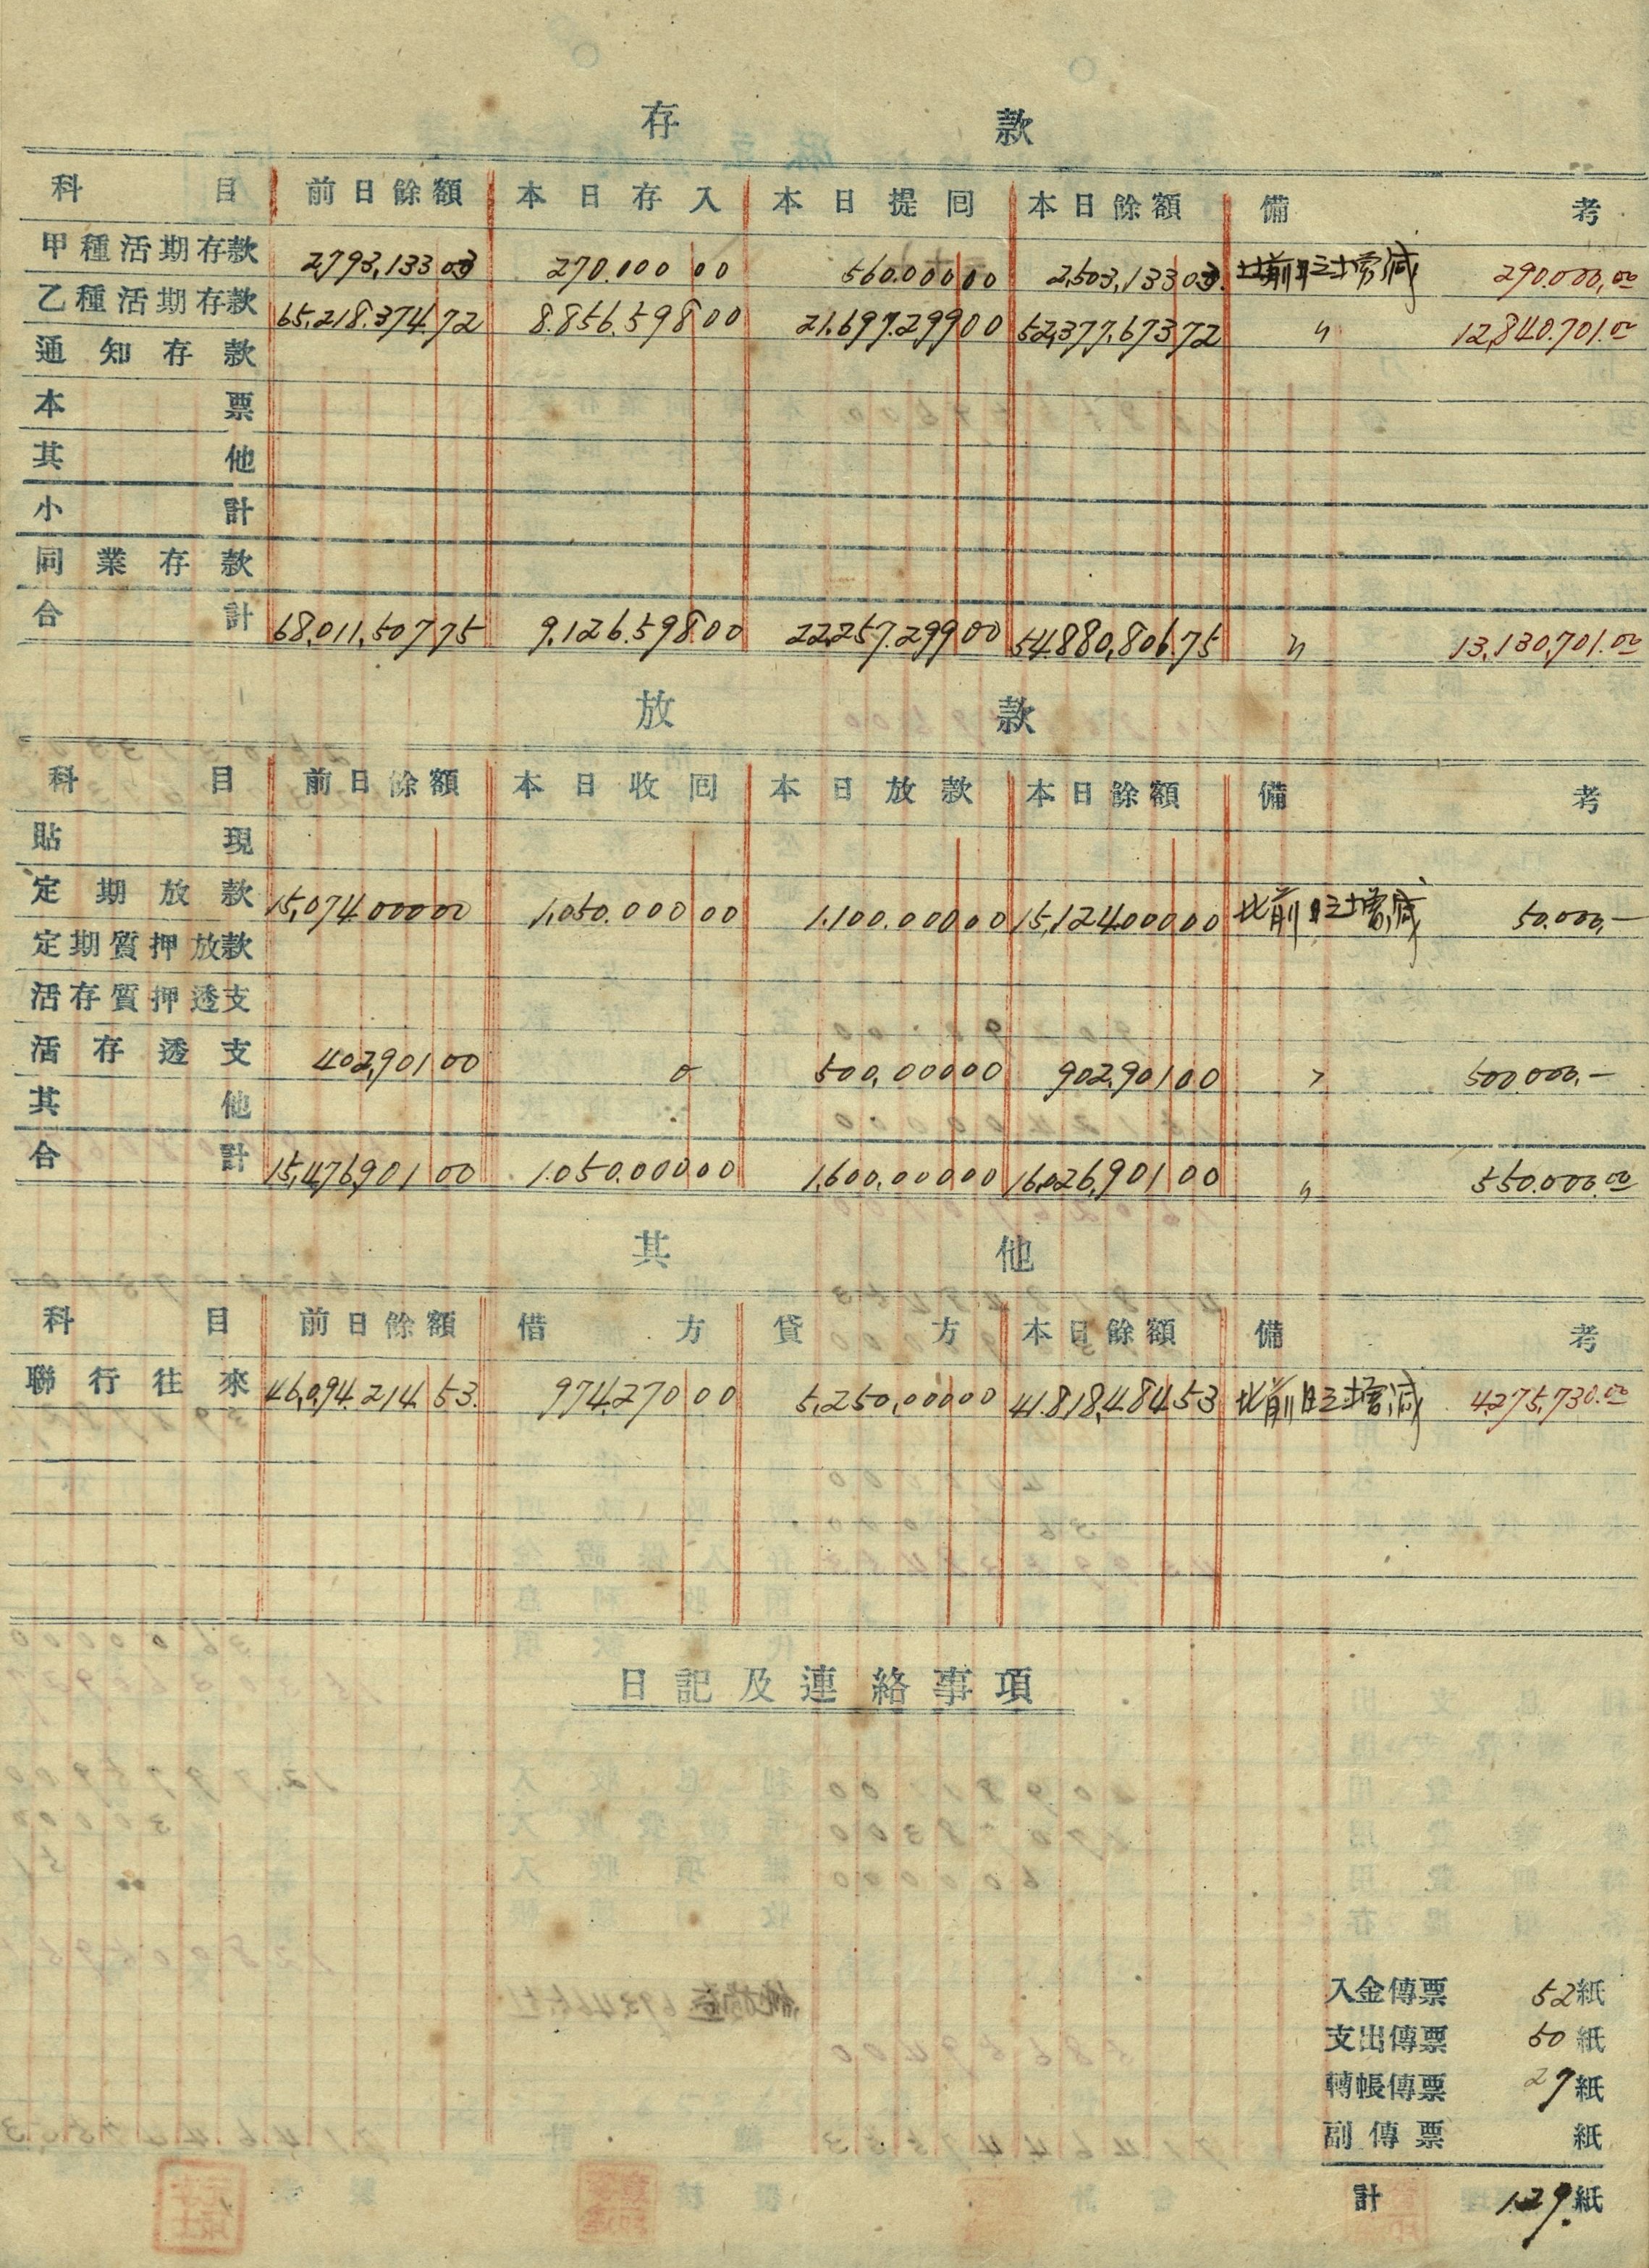 存款
科目 前日餘額 本日存入 本日提囘 本日餘額 備考
甲種活期存款 2,793,133 03 270.000 00 560.000 00 2,503,133 03 比前日之增減 290.000,00
乙種活期存款 65,218.374 72 8.856.598 00 21.697.299 00 52,377,673 72 〃 12,840.701.00
通知存款
本票
其他
小計
同業存款
合計 68,011,507 75 9,126.598.00 22,257.299 00 54.880,806.75 〃 13,130,701.00
放款
科目 前日餘額 本日收囘 本日放款 本日餘額 備考
貼現
定期放款 15,074.000 00 1,050.000 00 1.100.000 00 15,124.000 00 比前日之增減 50.000,—
定期質押放款
活存質押透支
活存透支 402,901 00 0 500,000 00 902,901 00 〃 500.000.—
其他
合計 15,476,901 00 1.050.000 00 1,600,000 00 16,026,901 00 〃 550.000.00
其他
科目 前日餘額 借方 貸方 本日餘額 備考
聯行往來 46,094.214.53. 974,270 00 5,250,000 00 41.818,484 53 比前日之增減 4,275,730.00
日記及連絡事項
入金傳票 52紙
支出傳票 50紙
轉帳傳票 27紙
副傳票 紙
計 129.紙